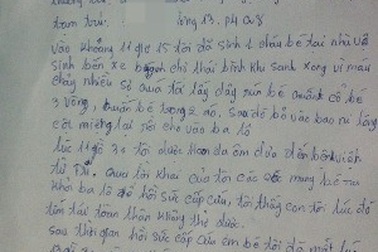 tạm trú: sông 13. p4 Q8
vào khoảng 11 giờ 15 tôi đã sinh 1 cháu bé tại nhà vệ
sinh bến xe chở thái bình khi sanh xong vì máu
chảy nhiều sợ quá tôi lấy dây rún bé quấn cổ bé
3 vòng, quấn bé trong 2 áo, sau đó bỏ vào bao ni lông
cột miệng lại rồi cho vào ba lô
lúc 11 giờ 30 tôi được đưa đến bệnh viện
từ Dũ. Qua lời khai của tôi các bác mang bé ra
khỏi ba lô để hồi sức cấp cứu, tôi thấy con tôi lúc đó
tím tái toàn thân không thở được.
sau thời gian hồi sức cấp cứu em bé tôi đã mất lúc